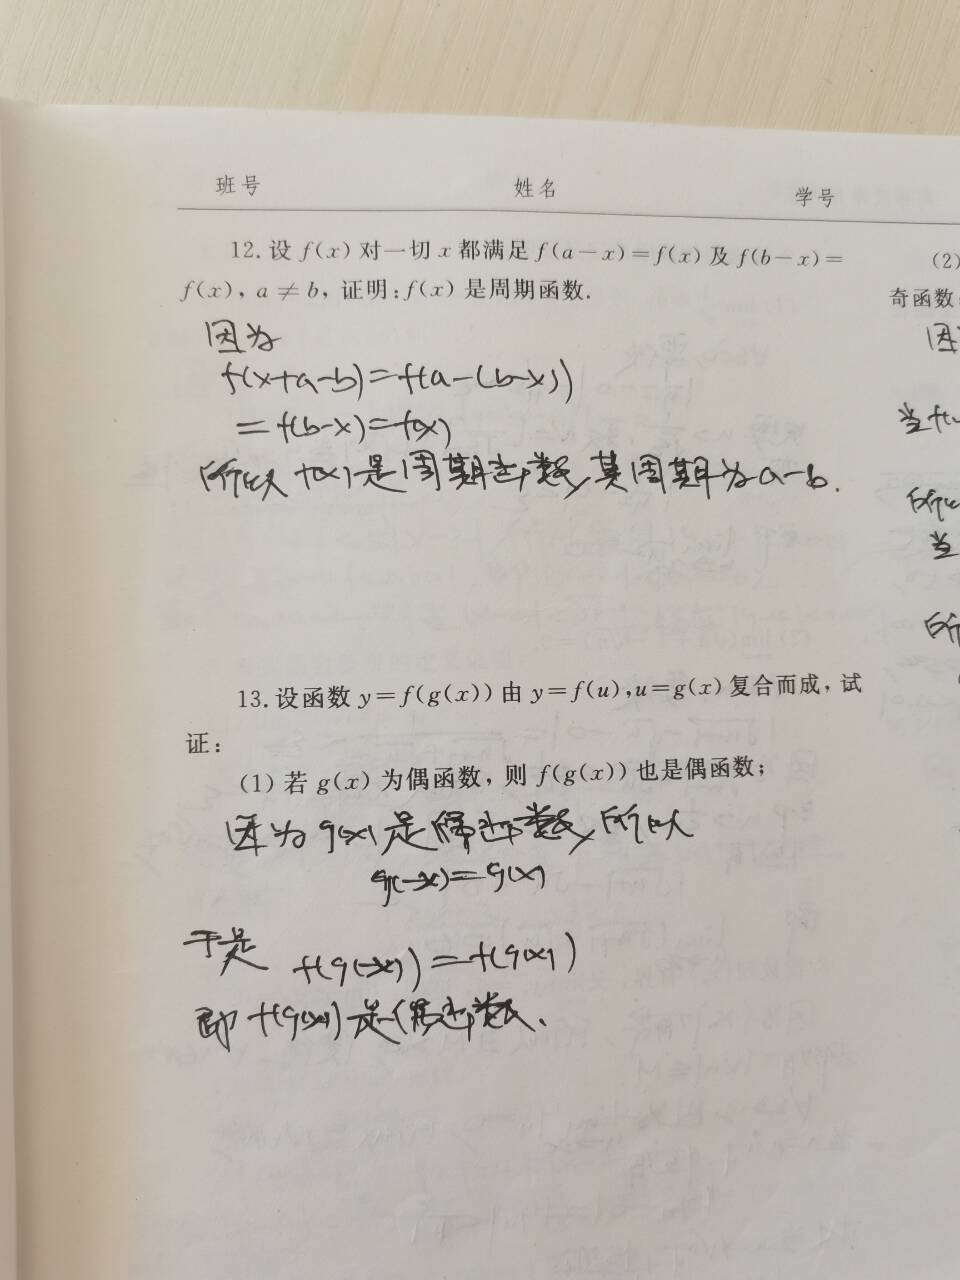 班号 姓名 学号
12.设 f(x) 对一切 x 都满足 f(a-x)=f(x) 及 f(b-x)=
f(x), a≠b, 证明:f(x) 是周期函数.
因为
f(x+a-b)=f(a-(b-x))
=f(b-x)=f(x)
所以 f(x)是周期函数,其周期为a-b.
13.设函数 y=f(g(x)) 由 y=f(u),u=g(x) 复合而成, 试
证:
(1) 若 g(x) 为偶函数, 则 f(g(x)) 也是偶函数;
因为 g(x)是偶函数,所以
g(-x)=g(x)
于是 f(g(-x))=f(g(x))
即 f(g(x))是偶函数.
(2)
奇函数
因
当f(u
所以
当
所